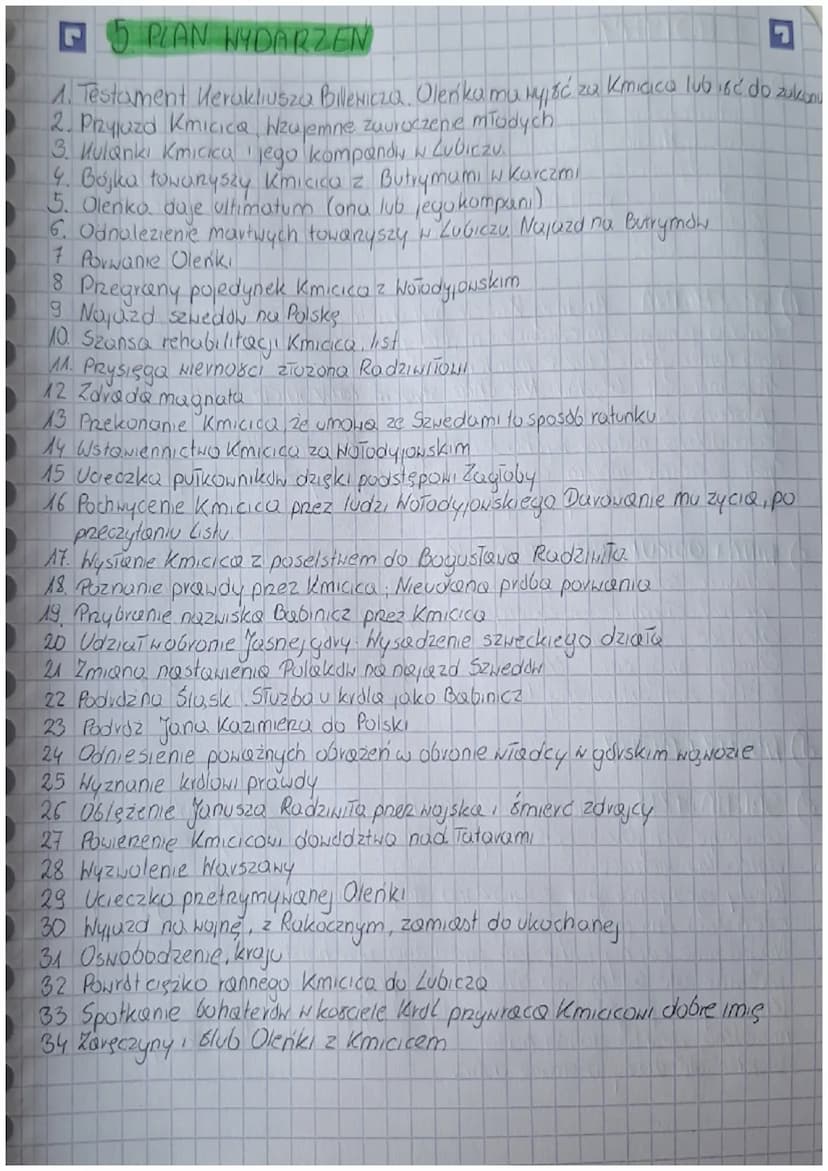 5 PLAN WYDARZEŃ
1. Testament Herakliusza Billewicza. Oleńka ma wyjść za Kmicica lub iść do zakonu
2. Przyjazd Kmicica, Wzajemne zauroczene młodych
3. Hulanki Kmicica i jego kompanów w Lubiczu
4. Bójka towarzyszy Kmicica z Butrymami w Karczmi
5. Oleńka daje ultimatum (ona lub jego kompani)
6. Odnalezienie martwych towarzyszy w Lubiczu. Najazd na Butrymów
7 Porwanie Oleńki
8 Przegrany pojedynek Kmicica z Wołodyjowskim
9 Najazd szwedów na Polskę
10. Szansa rehabilitacji Kmicica, list
11. Przysięga wierności złożona Radziwiłłowi
12 Zdrada magnata
13 Przekonanie Kmicica, że umowa ze Szwedami to sposób ratunku
14 Wstawiennictwo Kmicica za Wołodyjowskim
15 Ucieczka pułkowników dzięki podstępowi Zagłoby
16 Pochwycenie Kmicica przez ludzi Wołodyjowskiego Darowanie mu życia, po
przeczytaniu Listu
17. Wysłanie Kmicica z poselstwem do Bogusława Radziwiłła
18. Poznanie prawdy przez Kmicica; Nieudana próba porwania
19. Przybranie nazwiska Babinicz przez Kmicica
20 Udział w obronie Jasnej góry. Wysadzenie szweckiego działa
21 Zmiana nastawienia Polaków na najazd Szwedów
22 Podróż na Śląsk. Służba u króla jako Babinicz
23 Podróż Jana Kazimierza do Polski
24 Odniesienie poważnych obrażeń w obronie władcy w górskim wąwozie
25 Wyznanie królowi prawdy
26 Oblężenie Janusza Radziwiłła przez wojska i śmierć zdrajcy
27 Powierzenie Kmicicowi dowództwa nad Tatarami
28 Wyzwolenie Warszawy
29 Ucieczka przetrzymywanej Oleńki
30 Wyjazd na wojnę, z Rakoczym, zamiast do ukochanej
31 Oswobodzenie, kraju
32 Powrót ciężko rannego Kmicica do Lubicza
33 Spotkanie bohaterów w kościele Król przywraca Kmicicowi dobre imię
34 Zaręczyny i ślub Oleńki z Kmicicem